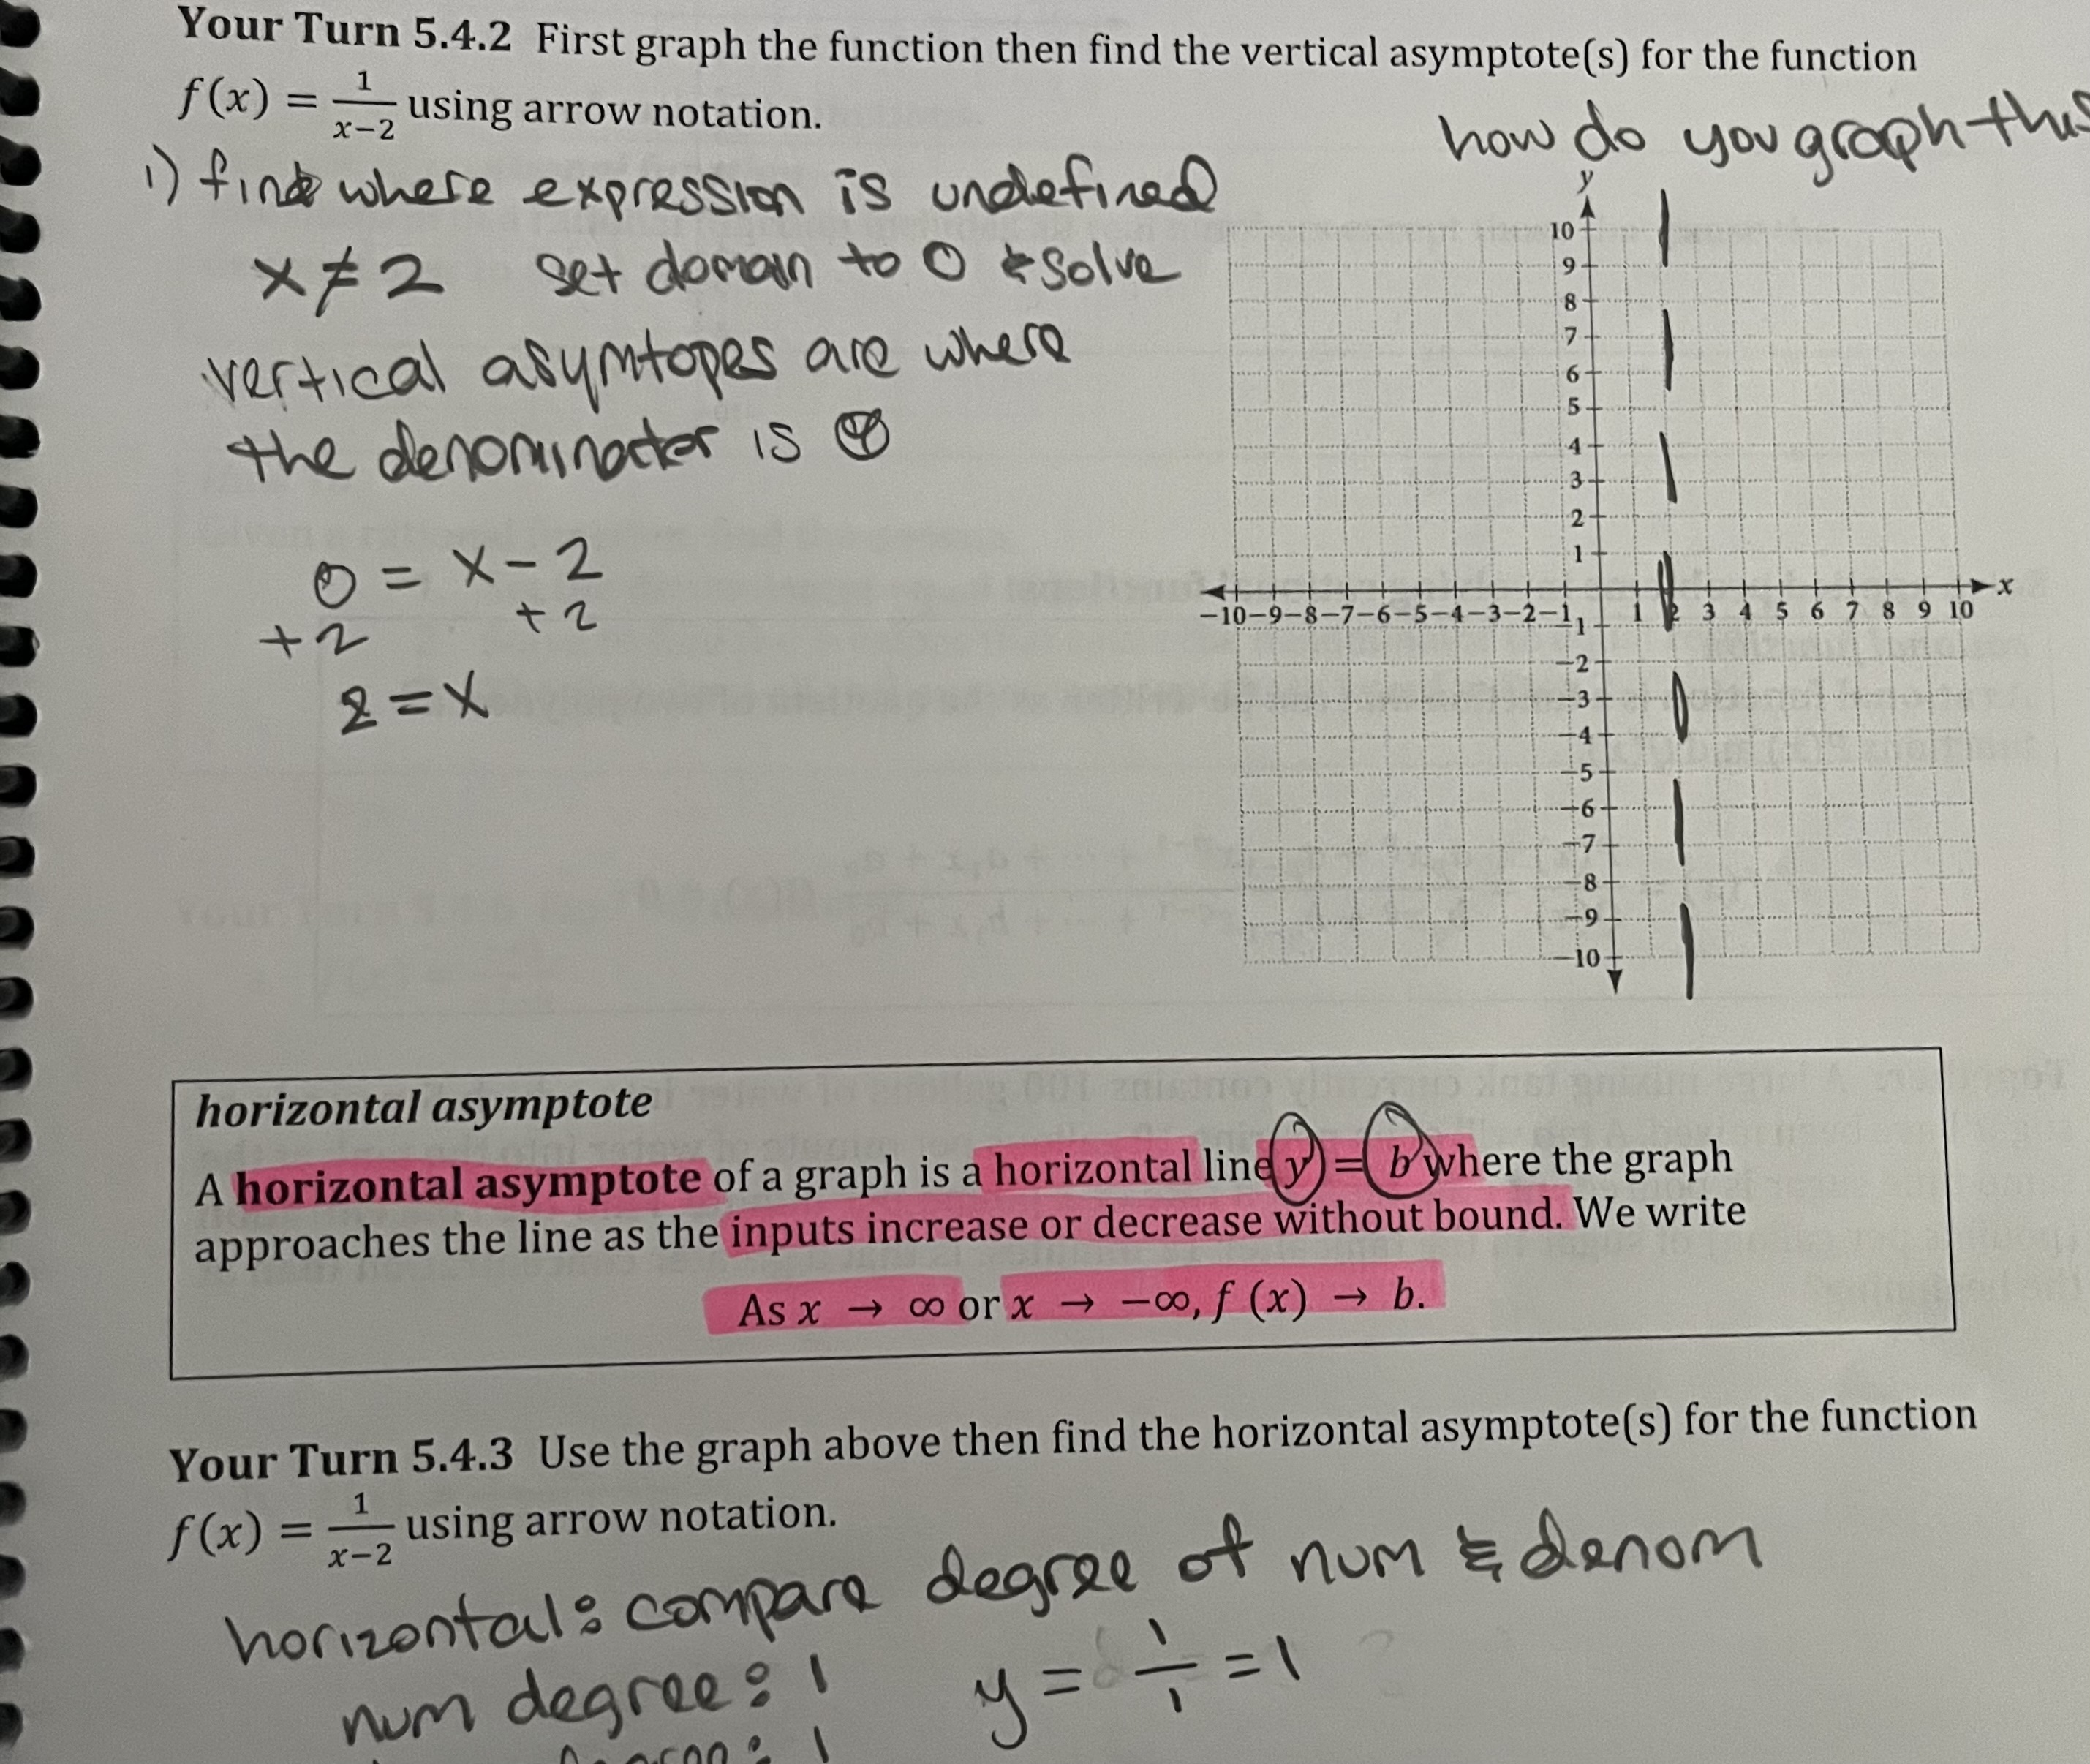 Your Turn 5.4.2 First graph the function then find the vertical asymptote(s) for the function
f(x) = 1/(x−2) using arrow notation.
how do you graph this
1) find where expression is undefined
x ≠ 2 set domain to 0 & solve
vertical asymtopes are where
the denominator is
0 = x − 2
+2 +2
2 = x
y
10
9
8
7
6
5
4
3
2
1
x
−10 −9 −8 −7 −6 −5 −4 −3 −2 −1 1 2 3 4 5 6 7 8 9 10
−1
−2
−3
−4
−5
−6
−7
−8
−9
−10
horizontal asymptote
A horizontal asymptote of a graph is a horizontal line y = b where the graph
approaches the line as the inputs increase or decrease without bound. We write
As x → ∞ or x → −∞, f (x) → b.
Your Turn 5.4.3 Use the graph above then find the horizontal asymptote(s) for the function
f(x) = 1/(x−2) using arrow notation.
horizontal: compare degree of num & denom
num degree: 1 y = 1/1 = 1
degree: 1